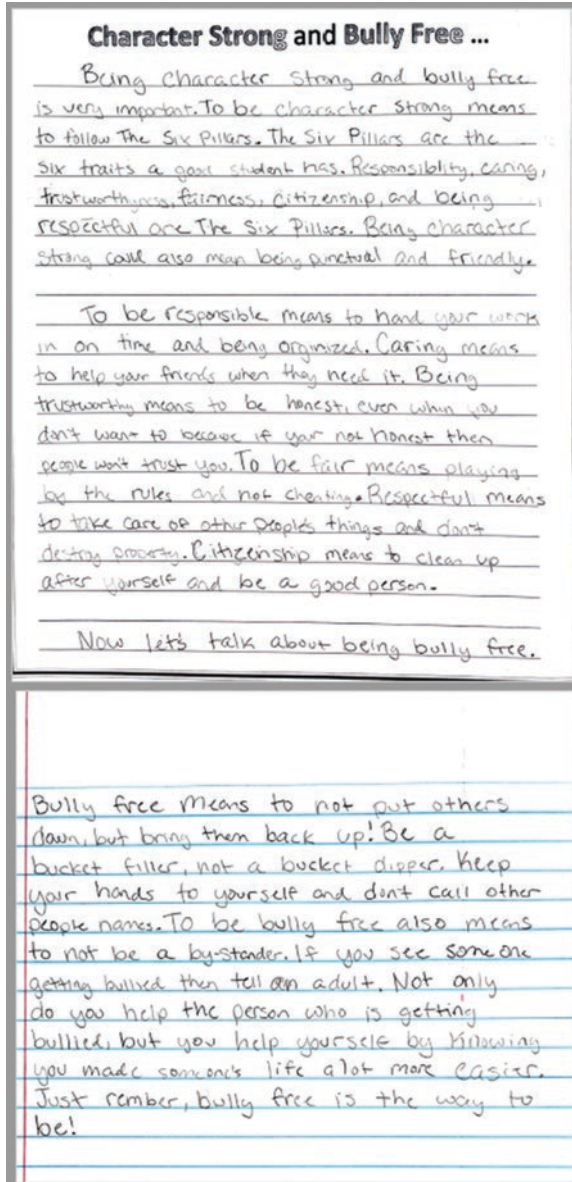 Character Strong and Bully Free ...
Being character strong and bully free
is very important. To be character strong means
to follow The Six Pillars. The Six Pillars are the
six traits a good student has. Responsiblity, caring,
trustworthyness, fairness, citizenship, and being
respectful are The Six Pillars. Being character
strong could also mean being punctual and friendly.
To be responsible means to hand your work
in on time and being orginized. Caring means
to help your friends when they need it. Being
trustworthy means to be honest, even when you
don't want to because if your not honest then
people won't trust you. To be fair means playing
by the rules and not cheating. Respectful means
to take care of other people's things and don't
destroy property. Citizenship means to clean up
after yourself and be a good person.
Now let's talk about being bully free.
Bully free means to not put others
down, but bring them back up! Be a
bucket filler, not a bucket dipper. Keep
your hands to yourself and don't call other
people names. To be bully free also means
to not be a by-stander. If you see someone
getting bullied then tell an adult. Not only
do you help the person who is getting
bullied, but you help yourself by knowing
you made someone's life alot more easier.
Just rember, bully free is the way to
be!